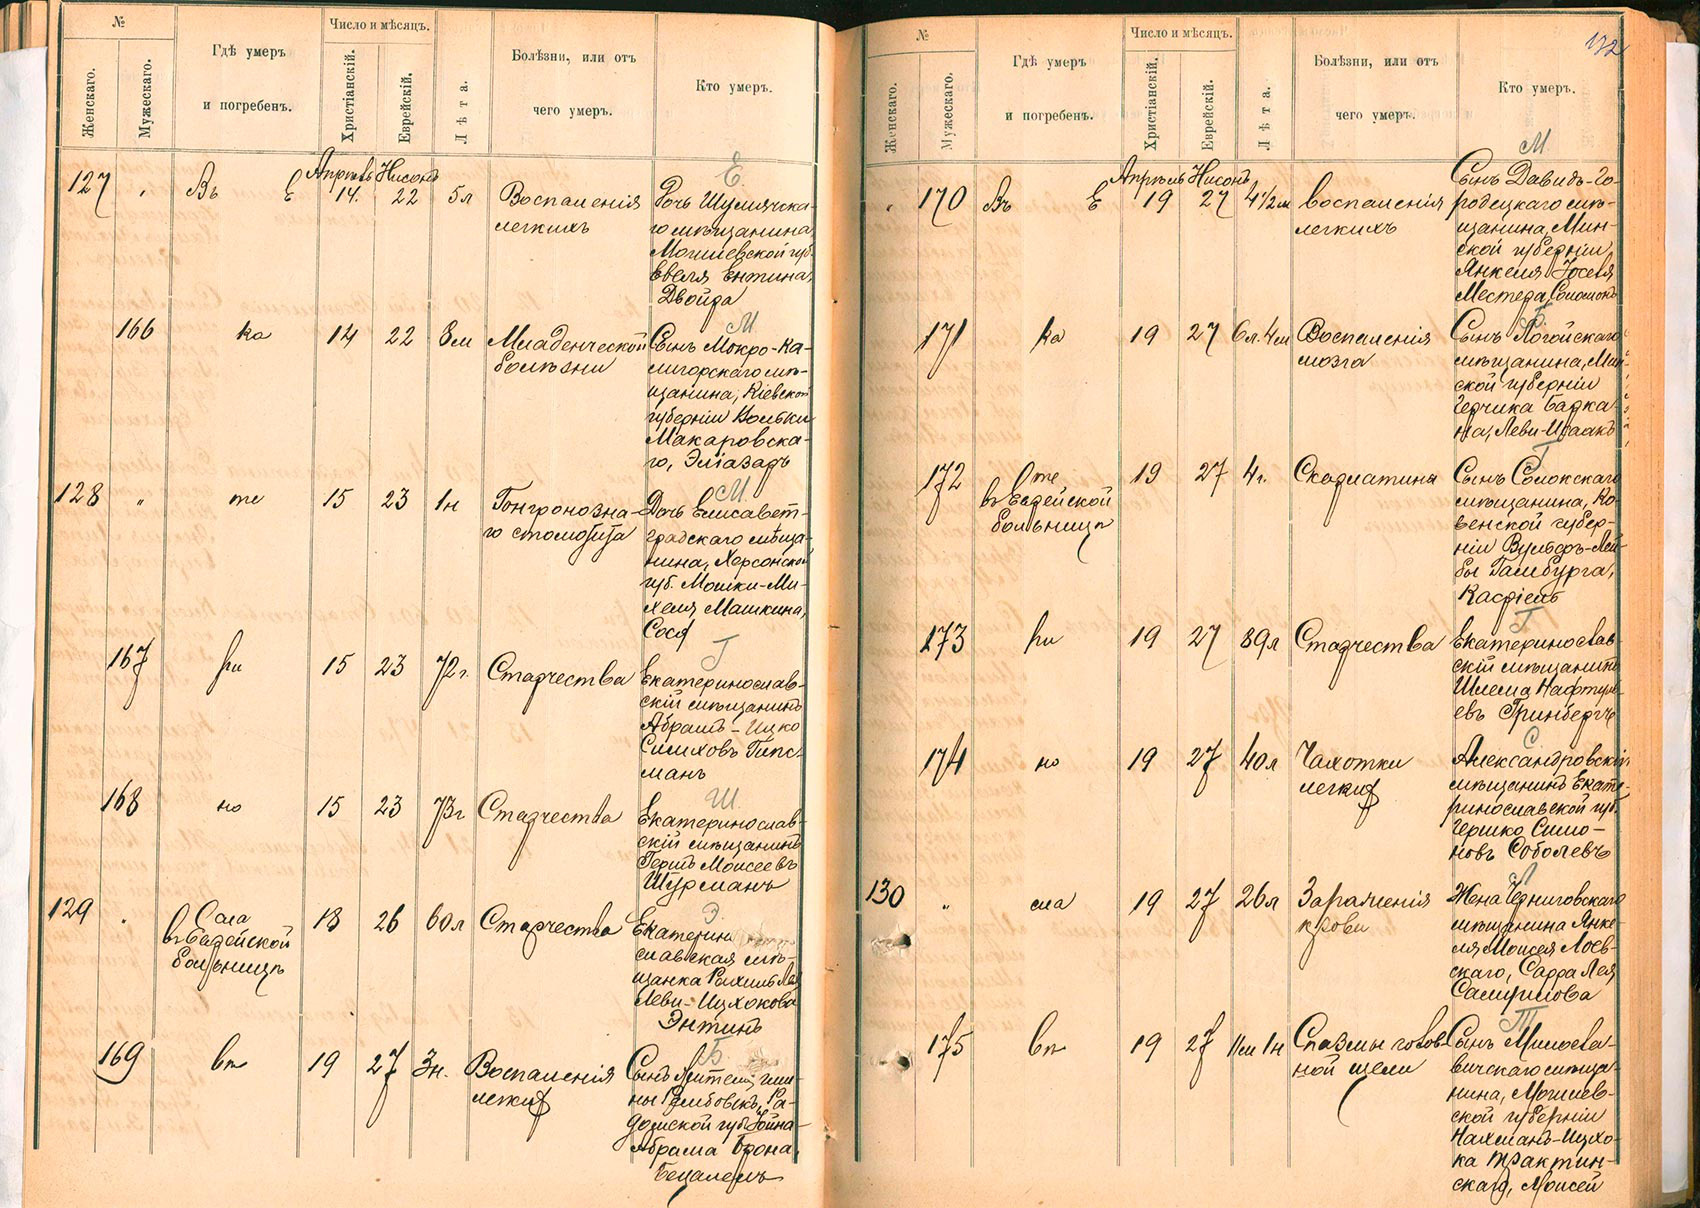 №
Женскаго.
Мужескаго.
Гдѣ умеръ
и погребенъ.
Число и мѣсяцъ.
Христіанскій.
Еврейскій.
Лѣта.
Болѣзни, или отъ
чего умеръ.
Кто умеръ.
Апрель Нисонъ
127 " Въ Е 14. 22 5л
Воспаленія
легкихъ
Е
Дочь Шумячска-
го мѣщанина
Могилевской губ.
Евеля Ентина,
Двойра
166 ка 14 22 8м
Младенческой
болѣзни
М.
Сынъ Мокро-Ка-
лигорскаго мѣ-
щанина, Кіевской
губерніи Вольки
Макаровска-
го, Эліазаръ
128 " те 15 23 1н
Гонгронозна-
го стоматита
М.
Дочь Елисавет-
градскаго мѣща-
нина, Херсонской
губ. Мошки-Ми-
хеля Машкина,
Сося
167 ри 15 23 72г.
Старчества
Г
Екатеринослав-
скій мѣщанинъ
Абрамъ-Ицко
Симховъ Гипс-
манъ
168 но 15 23 73г
Старчества
Ш.
Екатеринослав-
скій мѣщанинъ
Гершъ Моисеевъ
Шурманъ
129 " Сла
въ Еврейской
больницѣ
18 26 60л
Старчества
Э.
Екатерино
славская мѣ-
щанка Рыхиль Лея
Леви-Ицхокова
Энтинъ
169 вѣ 19 27 3н.
Воспаленія
легких
Б.
Сынъ жителя гми-
ны Рембовскъ, Ра-
домской губ. Йойна-
Абрама Брона,
Бецалелъ
132
№
Женскаго.
Мужескаго.
Гдѣ умеръ
и погребенъ.
Число и мѣсяцъ.
Христіанскій.
Еврейскій.
Лѣта.
Болѣзни, или отъ
чего умеръ.
Кто умеръ.
Апрель Нисонъ
" 170 Въ Е 19 27 4½м
воспаленія
легкихъ
М
Сынъ Давидъ-Го-
родецкаго мѣ-
щанина, Мин-
ской губерніи,
Янкеля Іоселя
Местера, Соломонъ
171 ка 19 27 6л. 4м
Воспаленія
мозга
Б.
Сынъ Логойскаго
мѣщанина, Мин-
ской губерніи
Герчика Баркана,
Леви-Исаакъ
172 те
въ Еврейской
больницѣ
19 27 4г.
Скарлатины
Г
Сынъ Солокскаго
мѣщанина, Ко-
венской губер-
ніи Вульфъ-Лей-
бы Гамбурга,
Касріель
173 ри 19 27 89л
Старчества
Г
Екатеринослав-
скій мѣщанинъ
Шлема Нафтул-
евъ Гринбергъ
174 но 19 27 40л
Чахотки
легких
С.
Александровскій
мѣщанинъ Екате-
ринославской губ.
Гершко Симо-
новъ Соболевъ
130 " сла 19 27 26л
Зараженія
крови
Л
Жена Черниговскаго
мѣщанина Янке-
ля Моисея Лоев-
скаго, Сарра Лея
Самуилова
175 вѣ 19 27 11м 1н
Спазмы голов-
ной щели
Т
Сынъ Милосла-
вичскаго мѣща-
нина, Могилев-
ской губерніи
Нахманъ-Ицхо-
ка Трактин-
скаго, Моисей